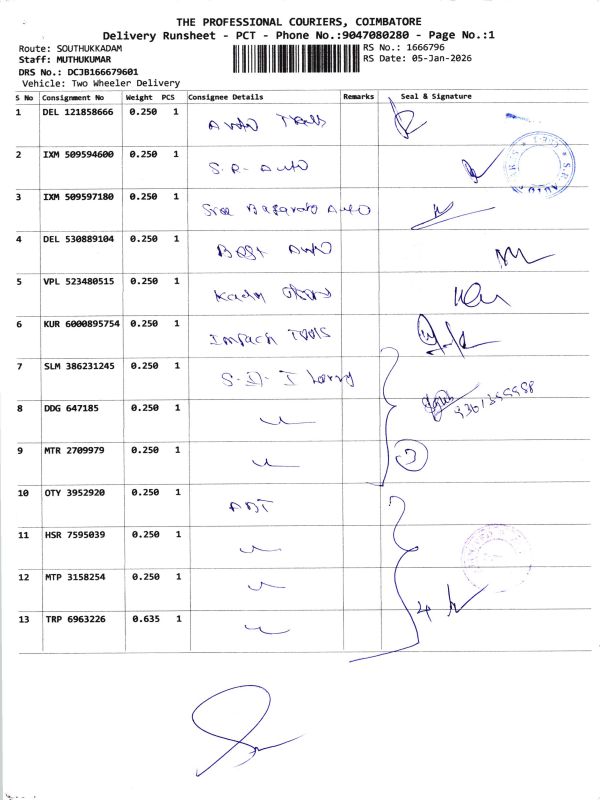 THE PROFESSIONAL COURIERS, COIMBATORE
Delivery Runsheet - PCT - Phone No.:9047080280 - Page No.:1
Route: SOUTHUKKADAM
RS No.: 1666796
Staff: MUTHUKUMAR
RS Date: 05-Jan-2026
DRS No.: DCJB166679601
Vehicle: Two Wheeler Delivery
S No Consignment No Weight PCS Consignee Details Remarks Seal & Signature
1 DEL 121858666 0.250 1 Auto
2 IXM 509594600 0.250 1 S.R. Auto
3 IXM 509597180 0.250 1 Auto
4 DEL 530889104 0.250 1 Best Auto
5 VPL 523480515 0.250 1
6 KUR 6000895754 0.250 1 Tools
7 SLM 386231245 0.250 1 S.I. I Lorry
8 DDG 647185 0.250 1
9 MTR 2709979 0.250 1 3
10 OTY 3952920 0.250 1 ADT
11 HSR 7595039 0.250 1
12 MTP 3158254 0.250 1 4
13 TRP 6963226 0.635 1